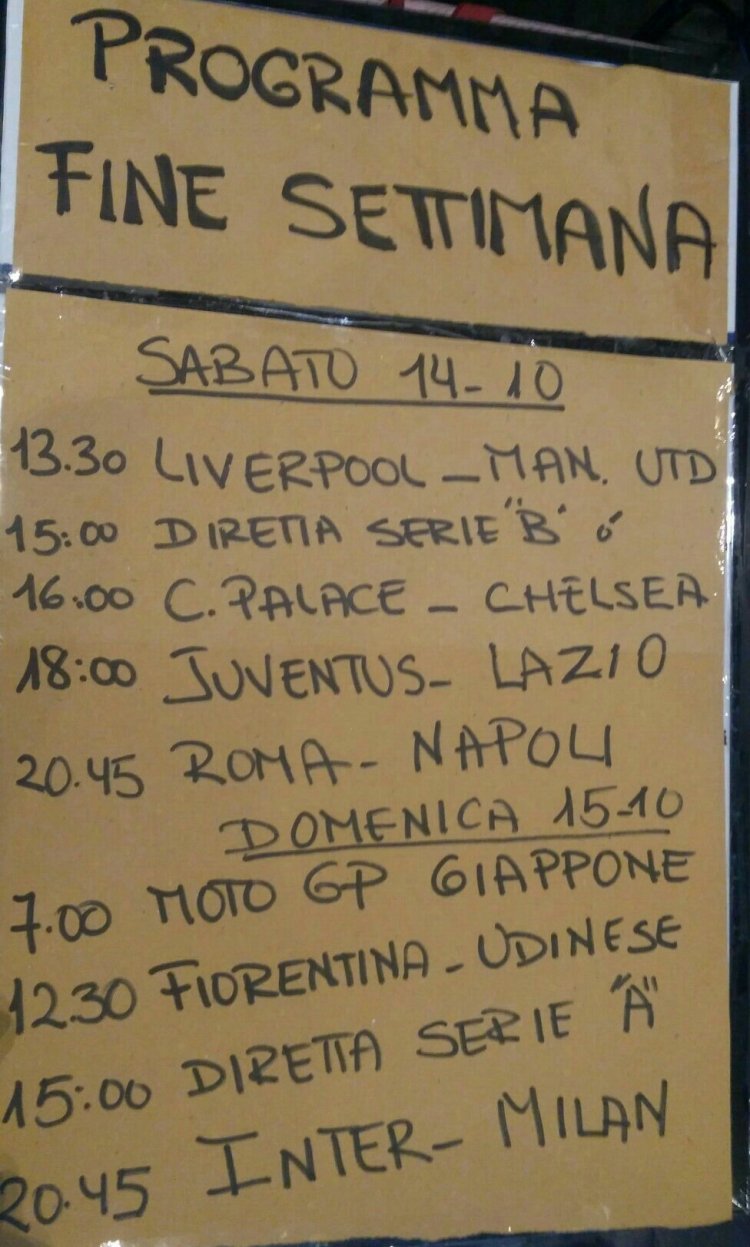 PROGRAMMA
FINE SETTIMANA
SABATO 14-10
13.30 LIVERPOOL - MAN. UTD
15:00 DIRETTA SERIE "B"
16:00 C. PALACE - CHELSEA
18:00 JUVENTUS - LAZIO
20.45 ROMA - NAPOLI
DOMENICA 15-10
7.00 MOTO GP GIAPPONE
12.30 FIORENTINA - UDINESE
15:00 DIRETTA SERIE "A"
20.45 INTER - MILAN